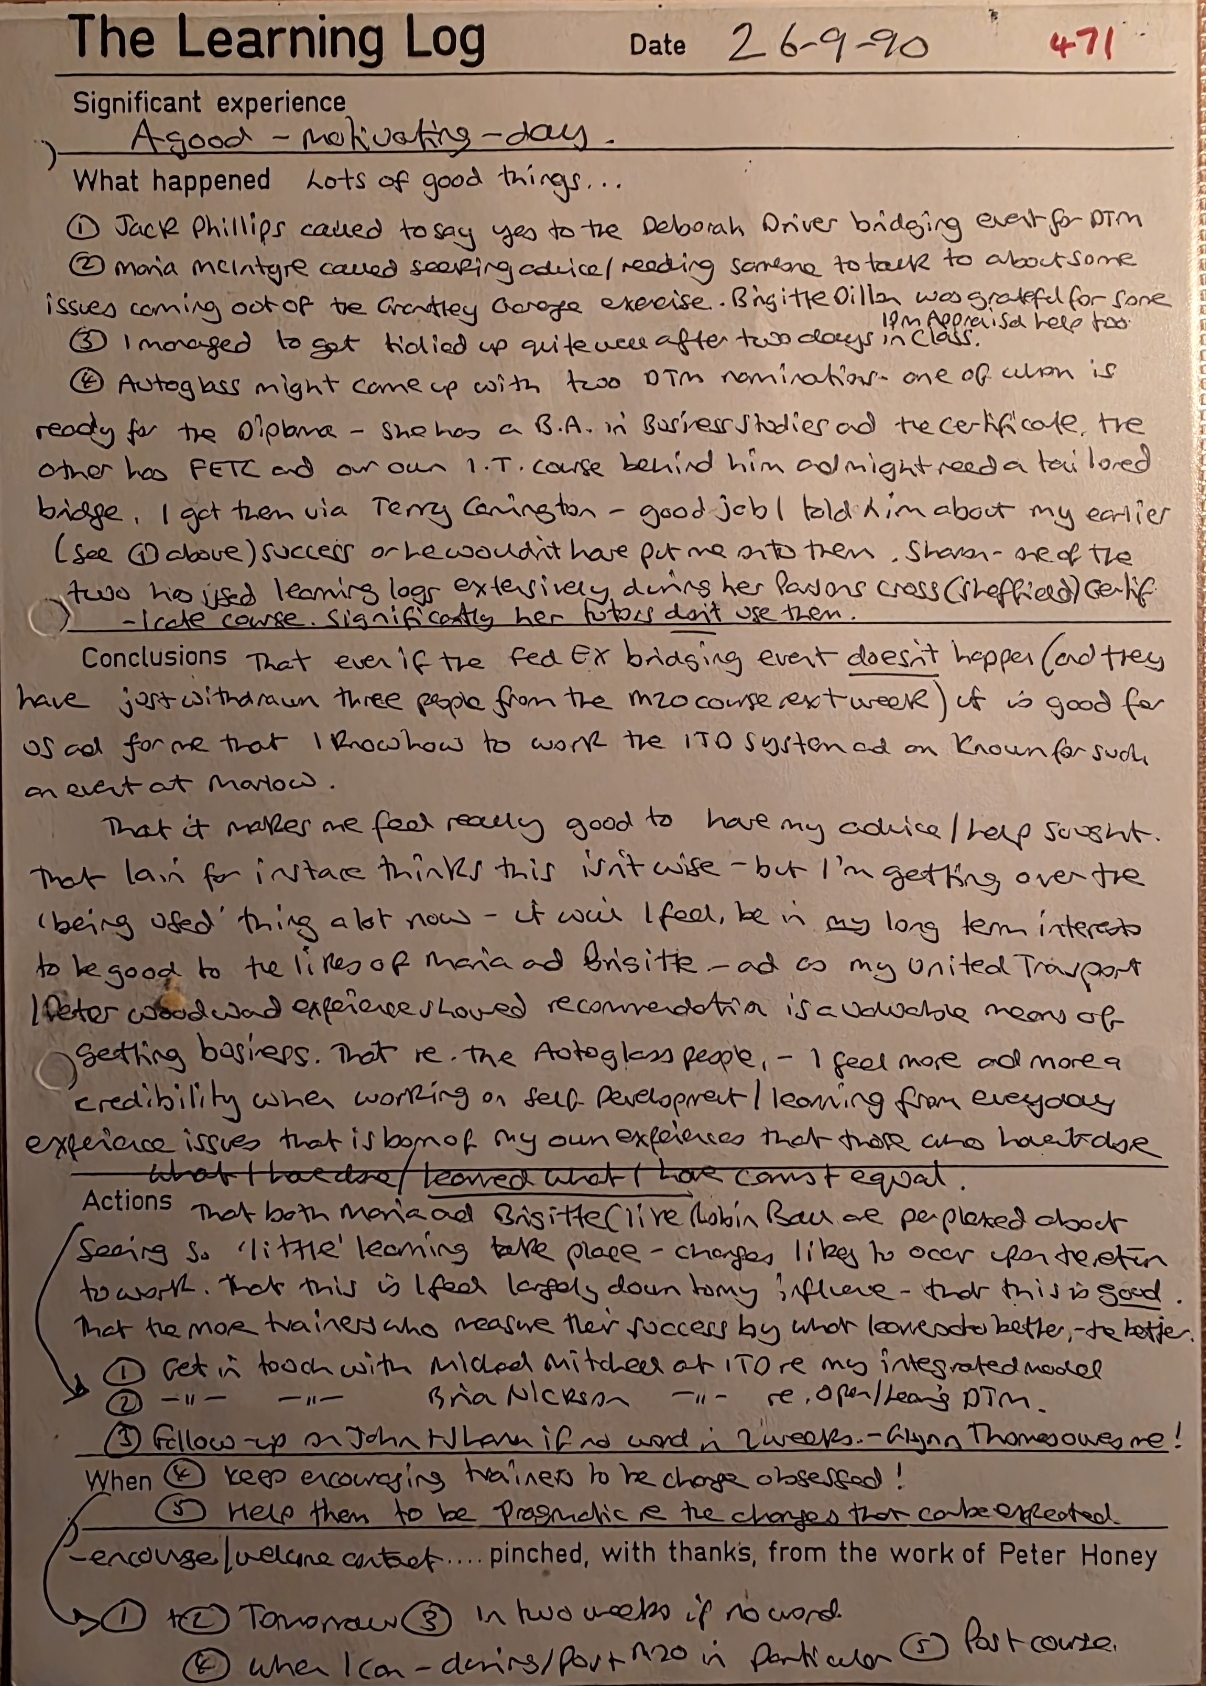 The Learning Log Date 26-9-90 471
Significant experience
A good - motivating - day.
What happened Lots of good things...
① Jack Phillips called to say yes to the Deborah Driver bridging event for DTM
② Maria McIntyre called seeking advice/needing someone to talk to about some
issues coming out of the Grantley Garage exercise. Brigitte Dillon was grateful for some
IPM Appraisal help too.
③ I managed to get tidied up quite well after two days in class.
④ Autoglass might come up with two DTM nominations - one of whom is
ready for the Diploma - she has a B.A. in Business Studies and the certificate, the
other has FETC and our own I.T. course behind him and might need a tailored
bridge. I got them via Terry - good job I told him about my earlier
(see ① above) success or he wouldn't have put me onto them. Sharon - one of the
two has used learning logs extensively during her Parsons Cross (Sheffield) Certif
-icate course. Significantly her tutors don't use them.
Conclusions That even if the Fed Ex bridging event doesn't happen (and they
have just withdrawn three people from the M20 course next week) it is good for
us and for me that I know how to work the ITD system and am known for such
an event at Marlow.
That it makes me feel really good to have my advice/help sought.
That Iain for instance thinks this isn't wise - but I'm getting over the
'being used' thing a lot now - it will I feel, be in my long term interests
to be good to the likes of Maria and Brigitte - and as my United Transport
/Peter Woodward experience showed recommendation is a valuable means of
getting business. That re. the Autoglass people, - I feel more and more a
credibility when working on Self Development/learning from everyday
experience issues that is born of my own experiences that those who haven't done
what I have done/learned what I have cannot equal.
Actions That both Maria and Brigitte (like Robin Ball are perplexed about
seeing so 'little' learning take place - changes likely to occur upon the return
to work. That this is I feel largely down to my influence - that this is good.
That the more trainers who measure their success by what learners do better, - the better.
① Get in touch with Michael Mitchell at ITD re my integrated model
② -"- -"- Brian Nickson -"- re. Open/Learning DTM.
③ Follow-up on John + Sharon if no word in 2 weeks. - Glynn Thomas owes me!
When ④ Keep encouraging trainers to be change obsessed!
⑤ Help them to be pragmatic re the changes that can be expected.
- encourage/welcome contact .... pinched, with thanks, from the work of Peter Honey
① + ② Tomorrow ③ In two weeks if no word.
④ When I can - during/post M20 in particular ⑤ Post course.